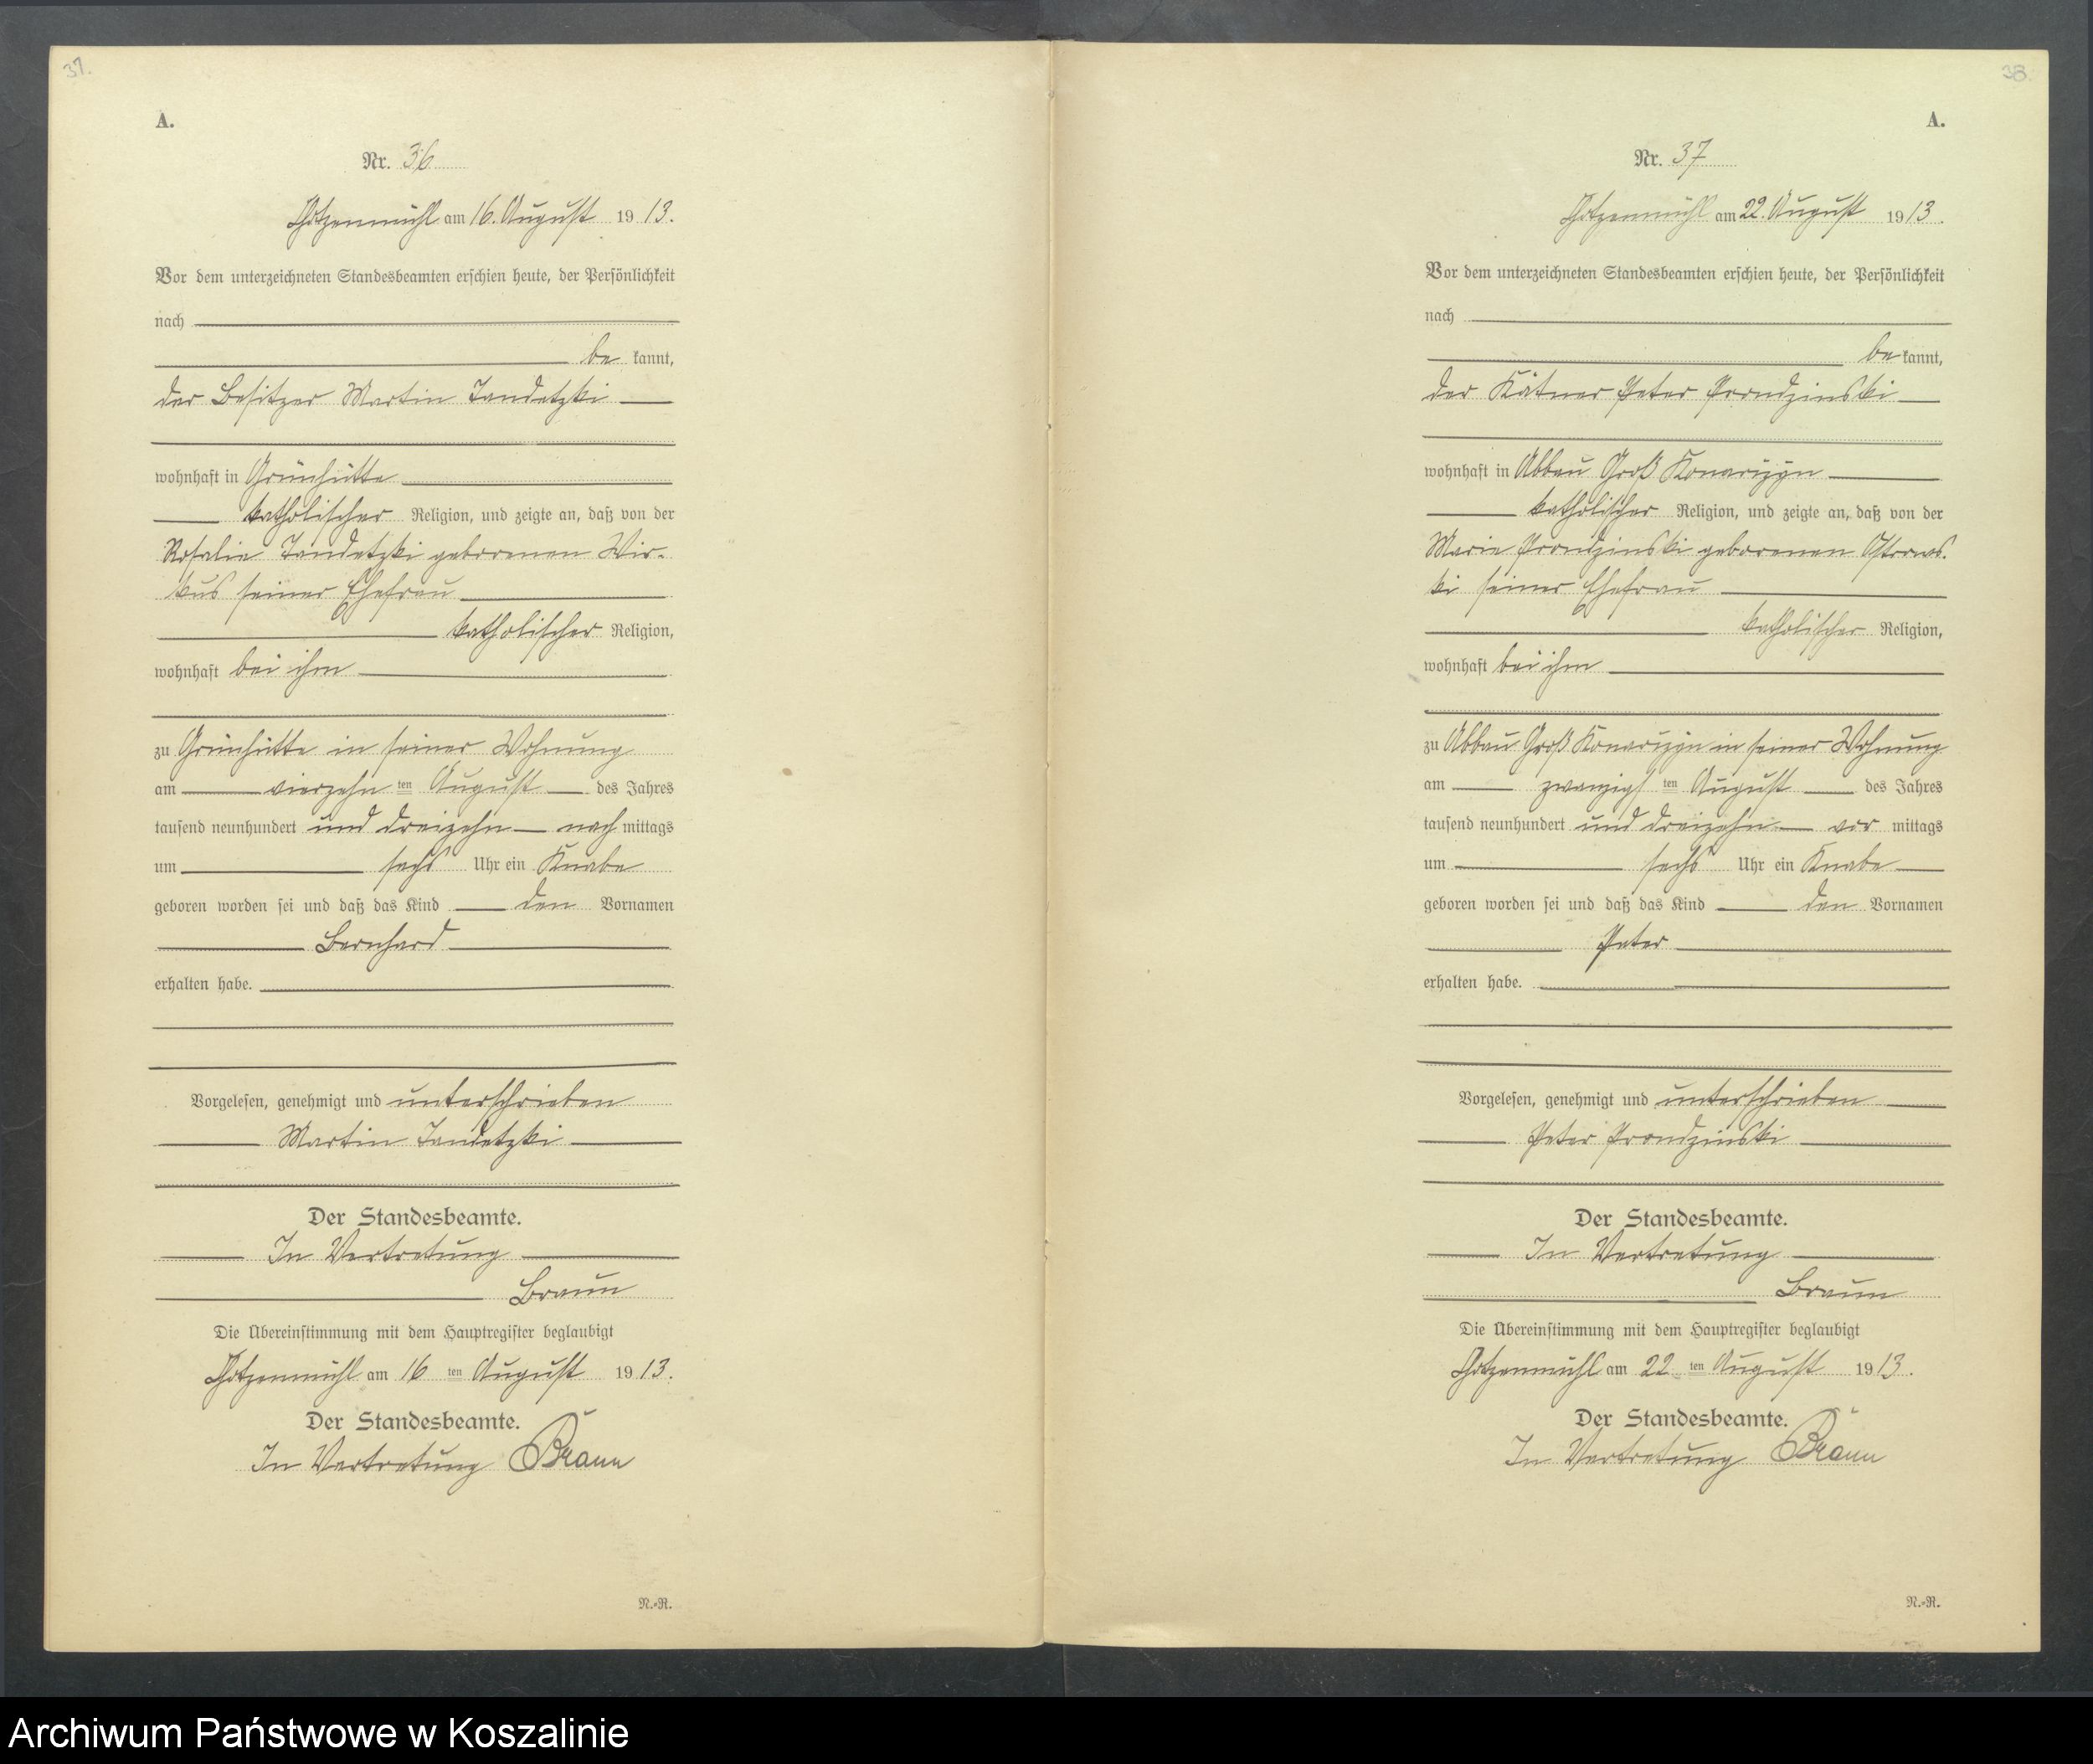 37.
A.
Nr. 36
Chotzenmühl am 16. August 1913.
Vor dem unterzeichneten Standesbeamten erschien heute, der Persönlichkeit
nach
be kannt,
der Besitzer Martin Jandetzki
wohnhaft in Grünhütte
katholischer Religion, und zeigte an, daß von der
Rosalie Jandetzki geborenen Wir-
kus seiner Ehefrau
katholischer Religion,
wohnhaft bei ihm
zu Grünhütte in seiner Wohnung
am vierzehn ten August des Jahres
tausend neunhundert und dreizehn nach mittags
um sechs Uhr ein Knabe
geboren worden sei und daß das Kind den Vornamen
Bernhard
erhalten habe.
Vorgelesen, genehmigt und unterschrieben
Martin Jandetzki
Der Standesbeamte.
In Vertretung
Braun
Die Übereinstimmung mit dem Hauptregister beglaubigt
Chotzenmühl am 16 ten August 1913.
Der Standesbeamte.
In Vertretung Braun
N.-R.
38.
A.
Nr. 37
Chotzenmühl am 22. August 1913.
Vor dem unterzeichneten Standesbeamten erschien heute, der Persönlichkeit
nach
be kannt,
der Kätner Peter Prondzinski
wohnhaft in Abbau Groß Konarczyn
katholischer Religion, und zeigte an, daß von der
Marie Prondzinski geborenen Ostrows-
ki seiner Ehefrau
katholischer Religion,
wohnhaft bei ihm
zu Abbau Groß Konarczyn in seiner Wohnung
am zwanzigs ten August des Jahres
tausend neunhundert und dreizehn vor mittags
um sechs Uhr ein Knabe
geboren worden sei und daß das Kind den Vornamen
Peter
erhalten habe.
Vorgelesen, genehmigt und unterschrieben
Peter Prondzinski
Der Standesbeamte.
In Vertretung
Braun
Die Übereinstimmung mit dem Hauptregister beglaubigt
Chotzenmühl am 22 ten August 1913.
Der Standesbeamte.
In Vertretung Braun
N.-R.
Archiwum Państwowe w Koszalinie